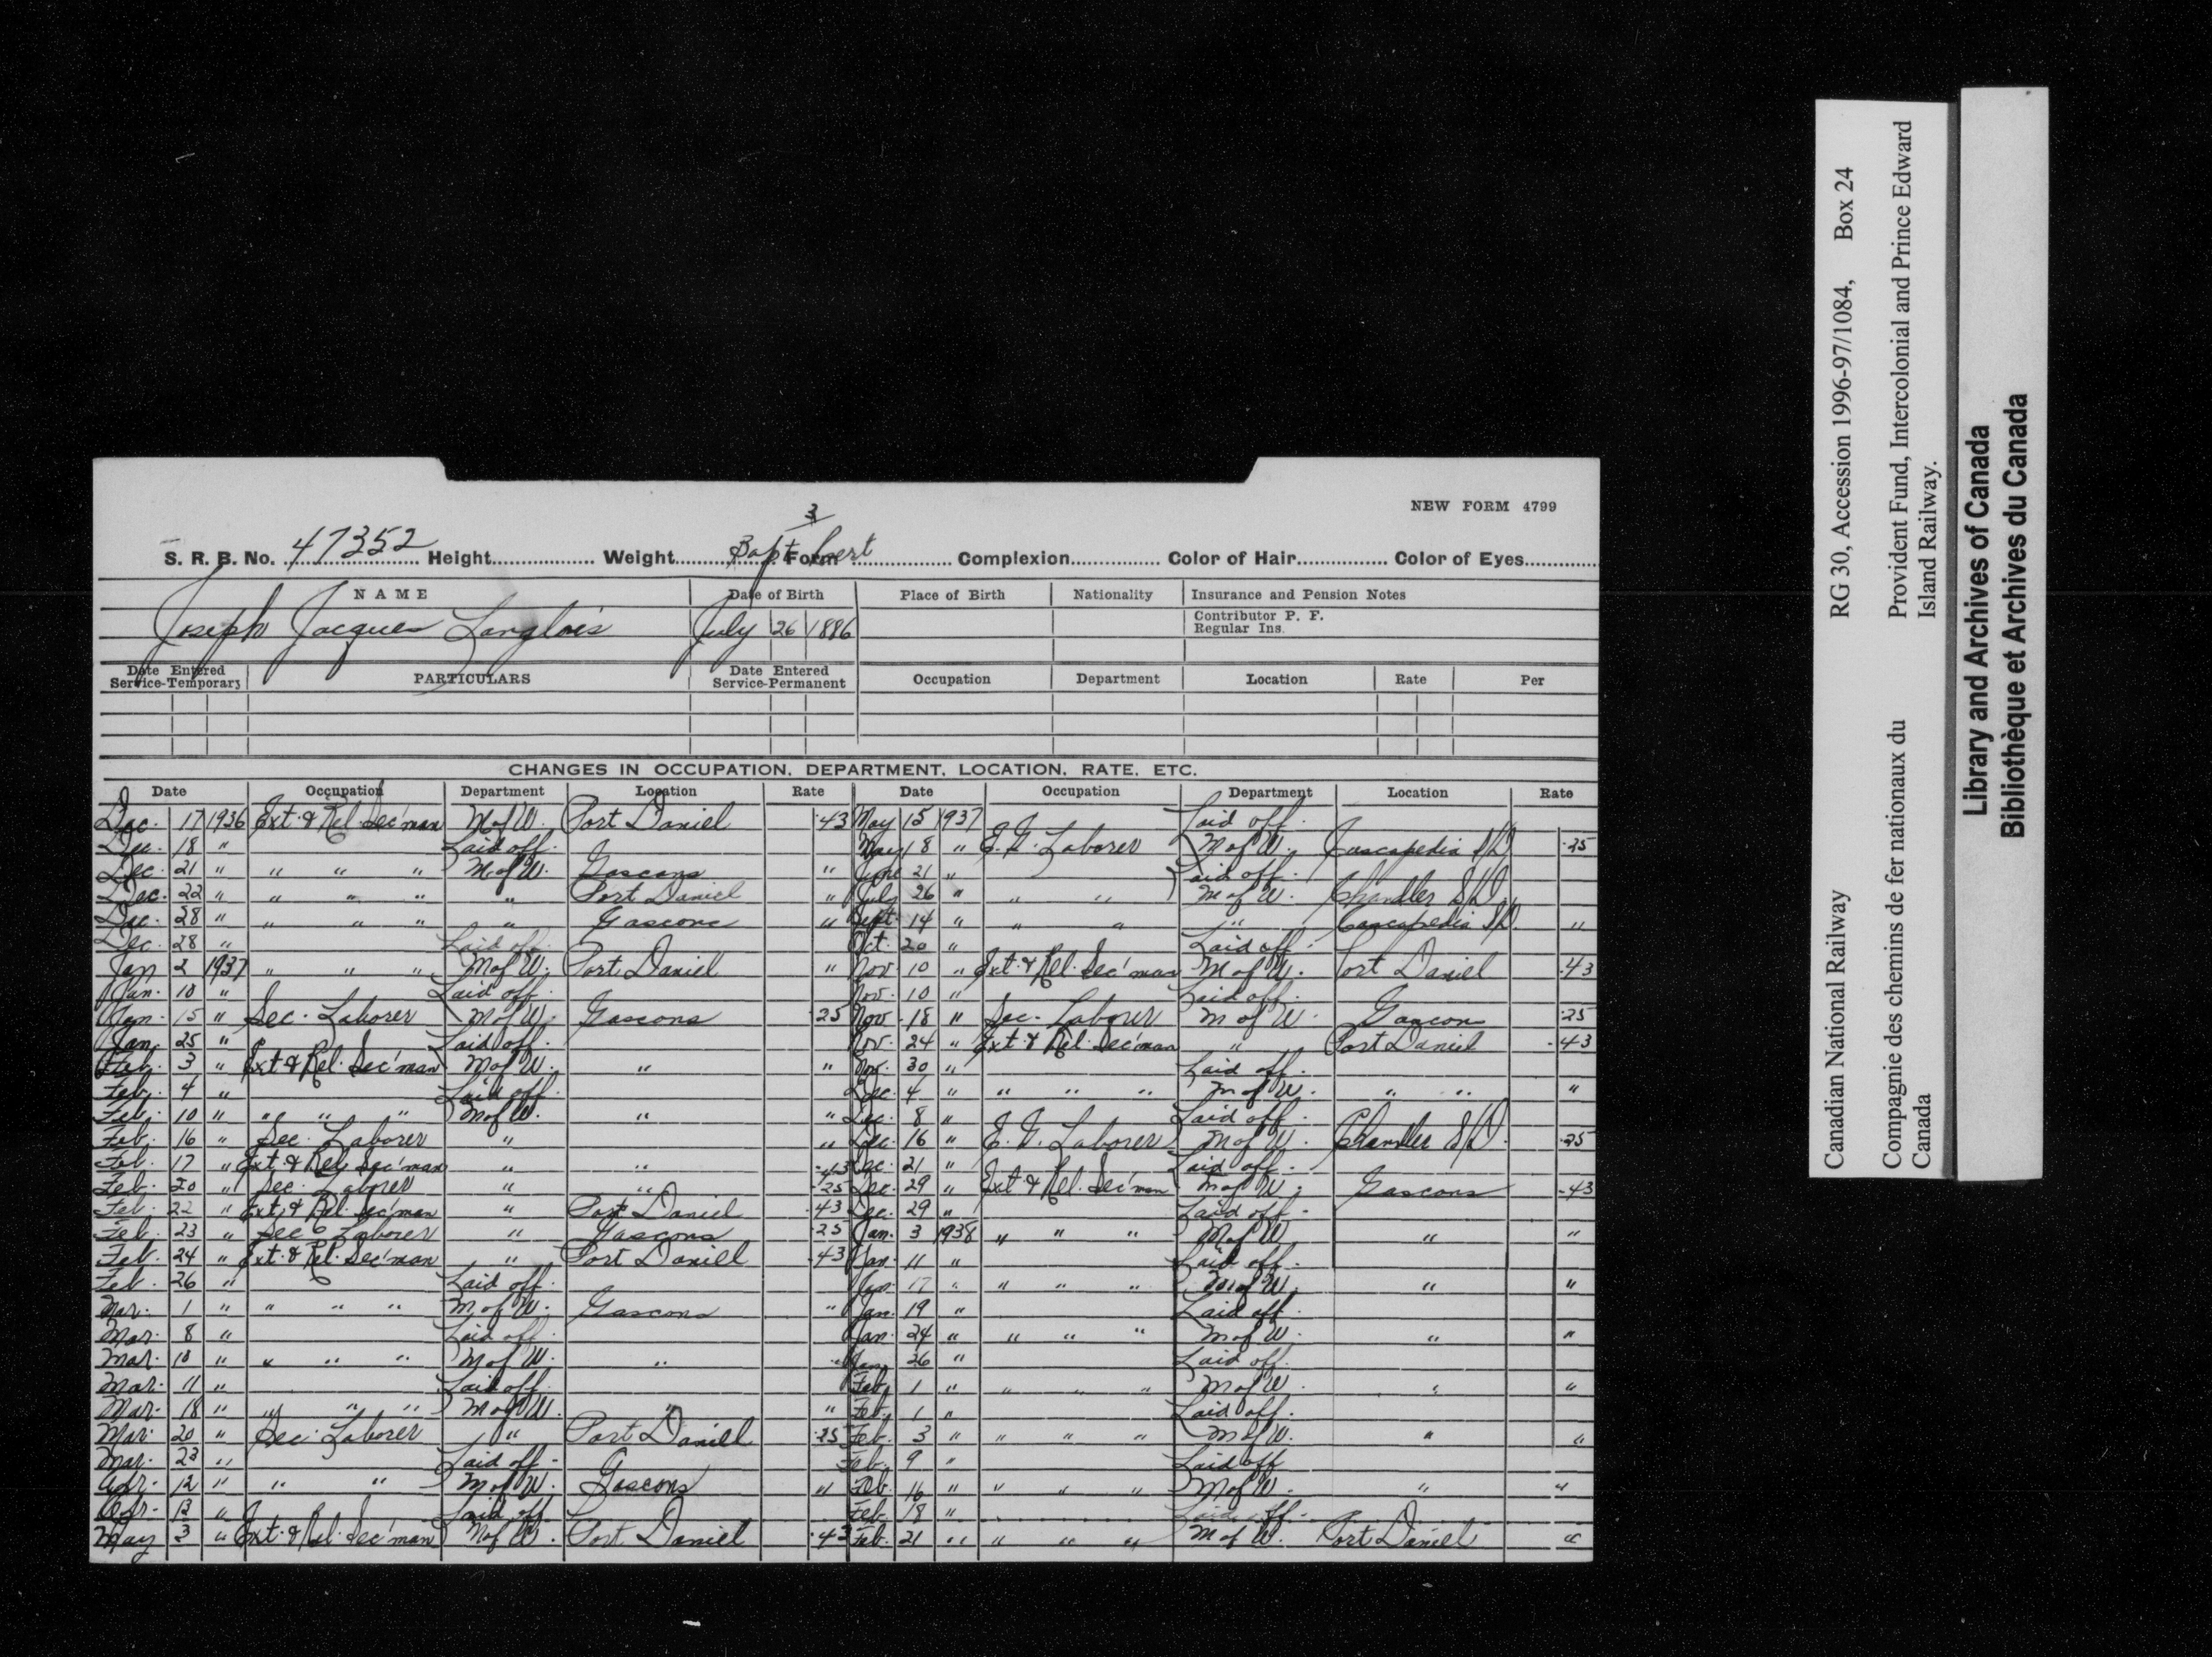 NEW FORM 4799
3
S. R. B. No. 47352 Height Weight Bapt Form Cert Complexion Color of Hair Color of Eyes
NAME Date of Birth Place of Birth Nationality Insurance and Pension Notes
Joseph Jacques Langlois July 26 1886 Contributor P. F.
Regular Ins.
Date Entered Service-Temporary PARTICULARS Date Entered Service-Permanent Occupation Department Location Rate Per
CHANGES IN OCCUPATION, DEPARTMENT, LOCATION, RATE, ETC.
Date Occupation Department Location Rate Date Occupation Department Location Rate
Dec. 17 1936 Ext. & Rel. Sec'man M of W. Port Daniel .43 May 15 1937 Laid off.
Dec. 18 " Laid off. May 18 " E. G. Laborer M of W. Cascapedia S/D .25
Dec. 21 " " " " M of W. Gascons " June 21 " Laid off.
Dec. 22 " " " " " Port Daniel " July 26 " " " M of W. Chandler S/D.
Dec. 28 " " " " " Gascons " Sept. 14 " " " " Cascapedia S/D. "
Dec. 28 " Laid off. Oct. 20 " Laid off.
Jan 2 1937 " " " M of W. Port Daniel " Nov. 10 " Ext. & Rel. Sec'man M of W. Port Daniel .43
Jan. 10 " Laid off. Nov. 10 " Laid off.
Jan. 15 " Sec. Laborer M of W. Gascons .25 Nov. 18 " Sec. Laborer M of W. Gascons .25
Jan. 25 " Laid off. Nov. 24 " Ext. & Rel. Sec'man " Port Daniel .43
Feb. 3 " Ext & Rel. Sec'man M of W. " " Nov. 30 " Laid off.
Feb. 4 " Laid off. Dec. 4 " " " " M of W. " " "
Feb. 10 " " " " M of W. " " Dec. 8 " Laid off.
Feb. 16 " Sec. Laborer " " Dec. 16 " E. G. Laborer M of W. Chandler S/D. .25
Feb. 17 " Ext. & Rel. Sec'man " " .43 Dec. 21 " Laid off.
Feb. 20 " Sec. Laborer " " .25 Dec. 29 " Ext & Rel. Sec'man M of W. Gascons .43
Feb. 22 " Ext. & Rel. Sec'man " Port Daniel .43 Dec. 29 " Laid off.
Feb. 23 " Sec. Laborer " Gascons .25 Jan. 3 1938 " " " M of W. " "
Feb. 24 " Ext. & Rel. Sec'man " Port Daniel .43 Jan. 11 " Laid off.
Feb. 26 " Laid off. Jan. 17 " " " " M of W. " "
Mar. 1 " " " " M of W. Gascons " Jan. 19 " Laid off.
Mar. 8 " Laid off. Jan. 24 " " " " M of W. " "
Mar. 10 " " " " M of W. " " Jan. 26 " Laid off.
Mar. 11 " Laid off. Feb. 1 " " " " M of W. " "
Mar. 18 " " " " M of W. " " Feb. 1 " Laid off.
Mar. 20 " Sec. Laborer " Port Daniel .25 Feb. 3 " " " " M of W. " "
Mar. 23 " Laid off. Feb. 9 " Laid off
Apr. 12 " " " M of W. Gascons " Feb. 16 " " " " M of W. " "
Apr. 13 " Laid off. Feb. 18 " Laid off.
May 3 " Ext. & Rel. Sec'man M of W. Port Daniel .43 Feb. 21 " " " " M of W. Port Daniel "
Canadian National Railway RG 30, Accession 1996-97/1084, Box 24
Compagnie des chemins de fer nationaux du Canada
Provident Fund, Intercolonial and Prince Edward Island Railway.
Library and Archives of Canada
Bibliothèque et Archives du Canada